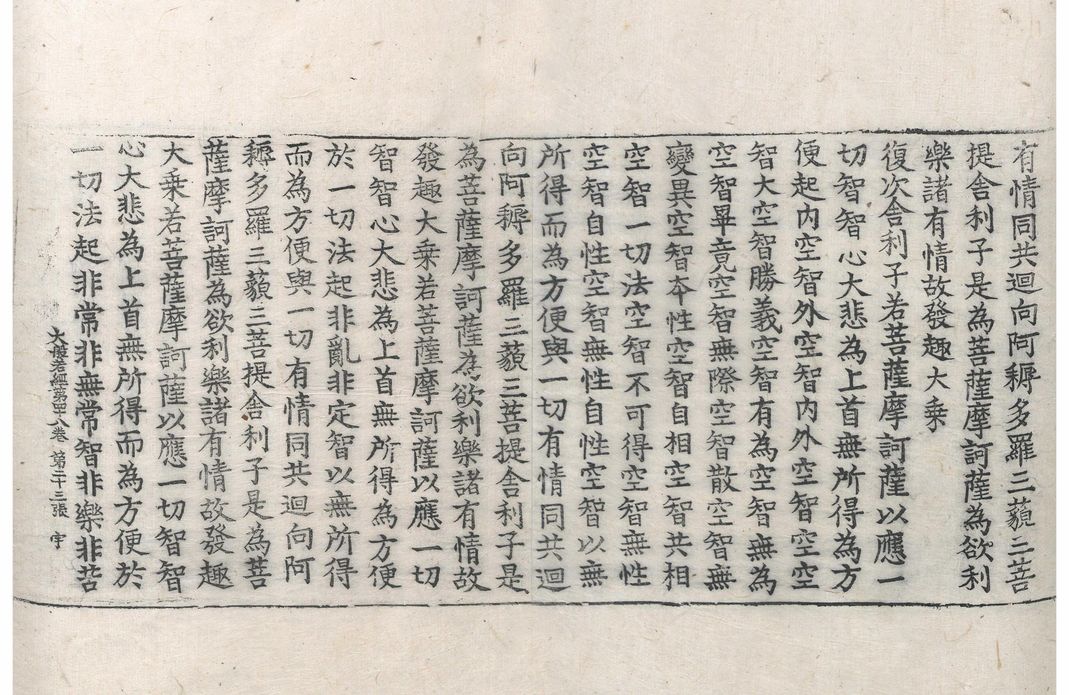 有情同共迴向阿耨多羅三藐三菩
提舍利子是為菩薩摩訶薩為欲利
樂諸有情故發趣大乘
復次舍利子若菩薩摩訶薩以應一
切智智心大悲為上首無所得為方
便起內空智外空智內外空智空空
智大空智勝義空智有為空智無為
空智畢竟空智無際空智散空智無
變異空智本性空智自相空智共相
空智一切法空智不可得空智無性
空智自性空智無性自性空智以無
所得而為方便與一切有情同共迴
向阿耨多羅三藐三菩提舍利子是
為菩薩摩訶薩為欲利樂諸有情故
發趣大乘若菩薩摩訶薩以應一切
智智心大悲為上首無所得為方便
於一切法起非亂非定智以無所得
而為方便與一切有情同共迴向阿
耨多羅三藐三菩提舍利子是為菩
薩摩訶薩為欲利樂諸有情故發趣
大乘若菩薩摩訶薩以應一切智智
心大悲為上首無所得而為方便於
一切法起非常非無常智非樂非苦
大般若經第四八卷 第二十三張 宇